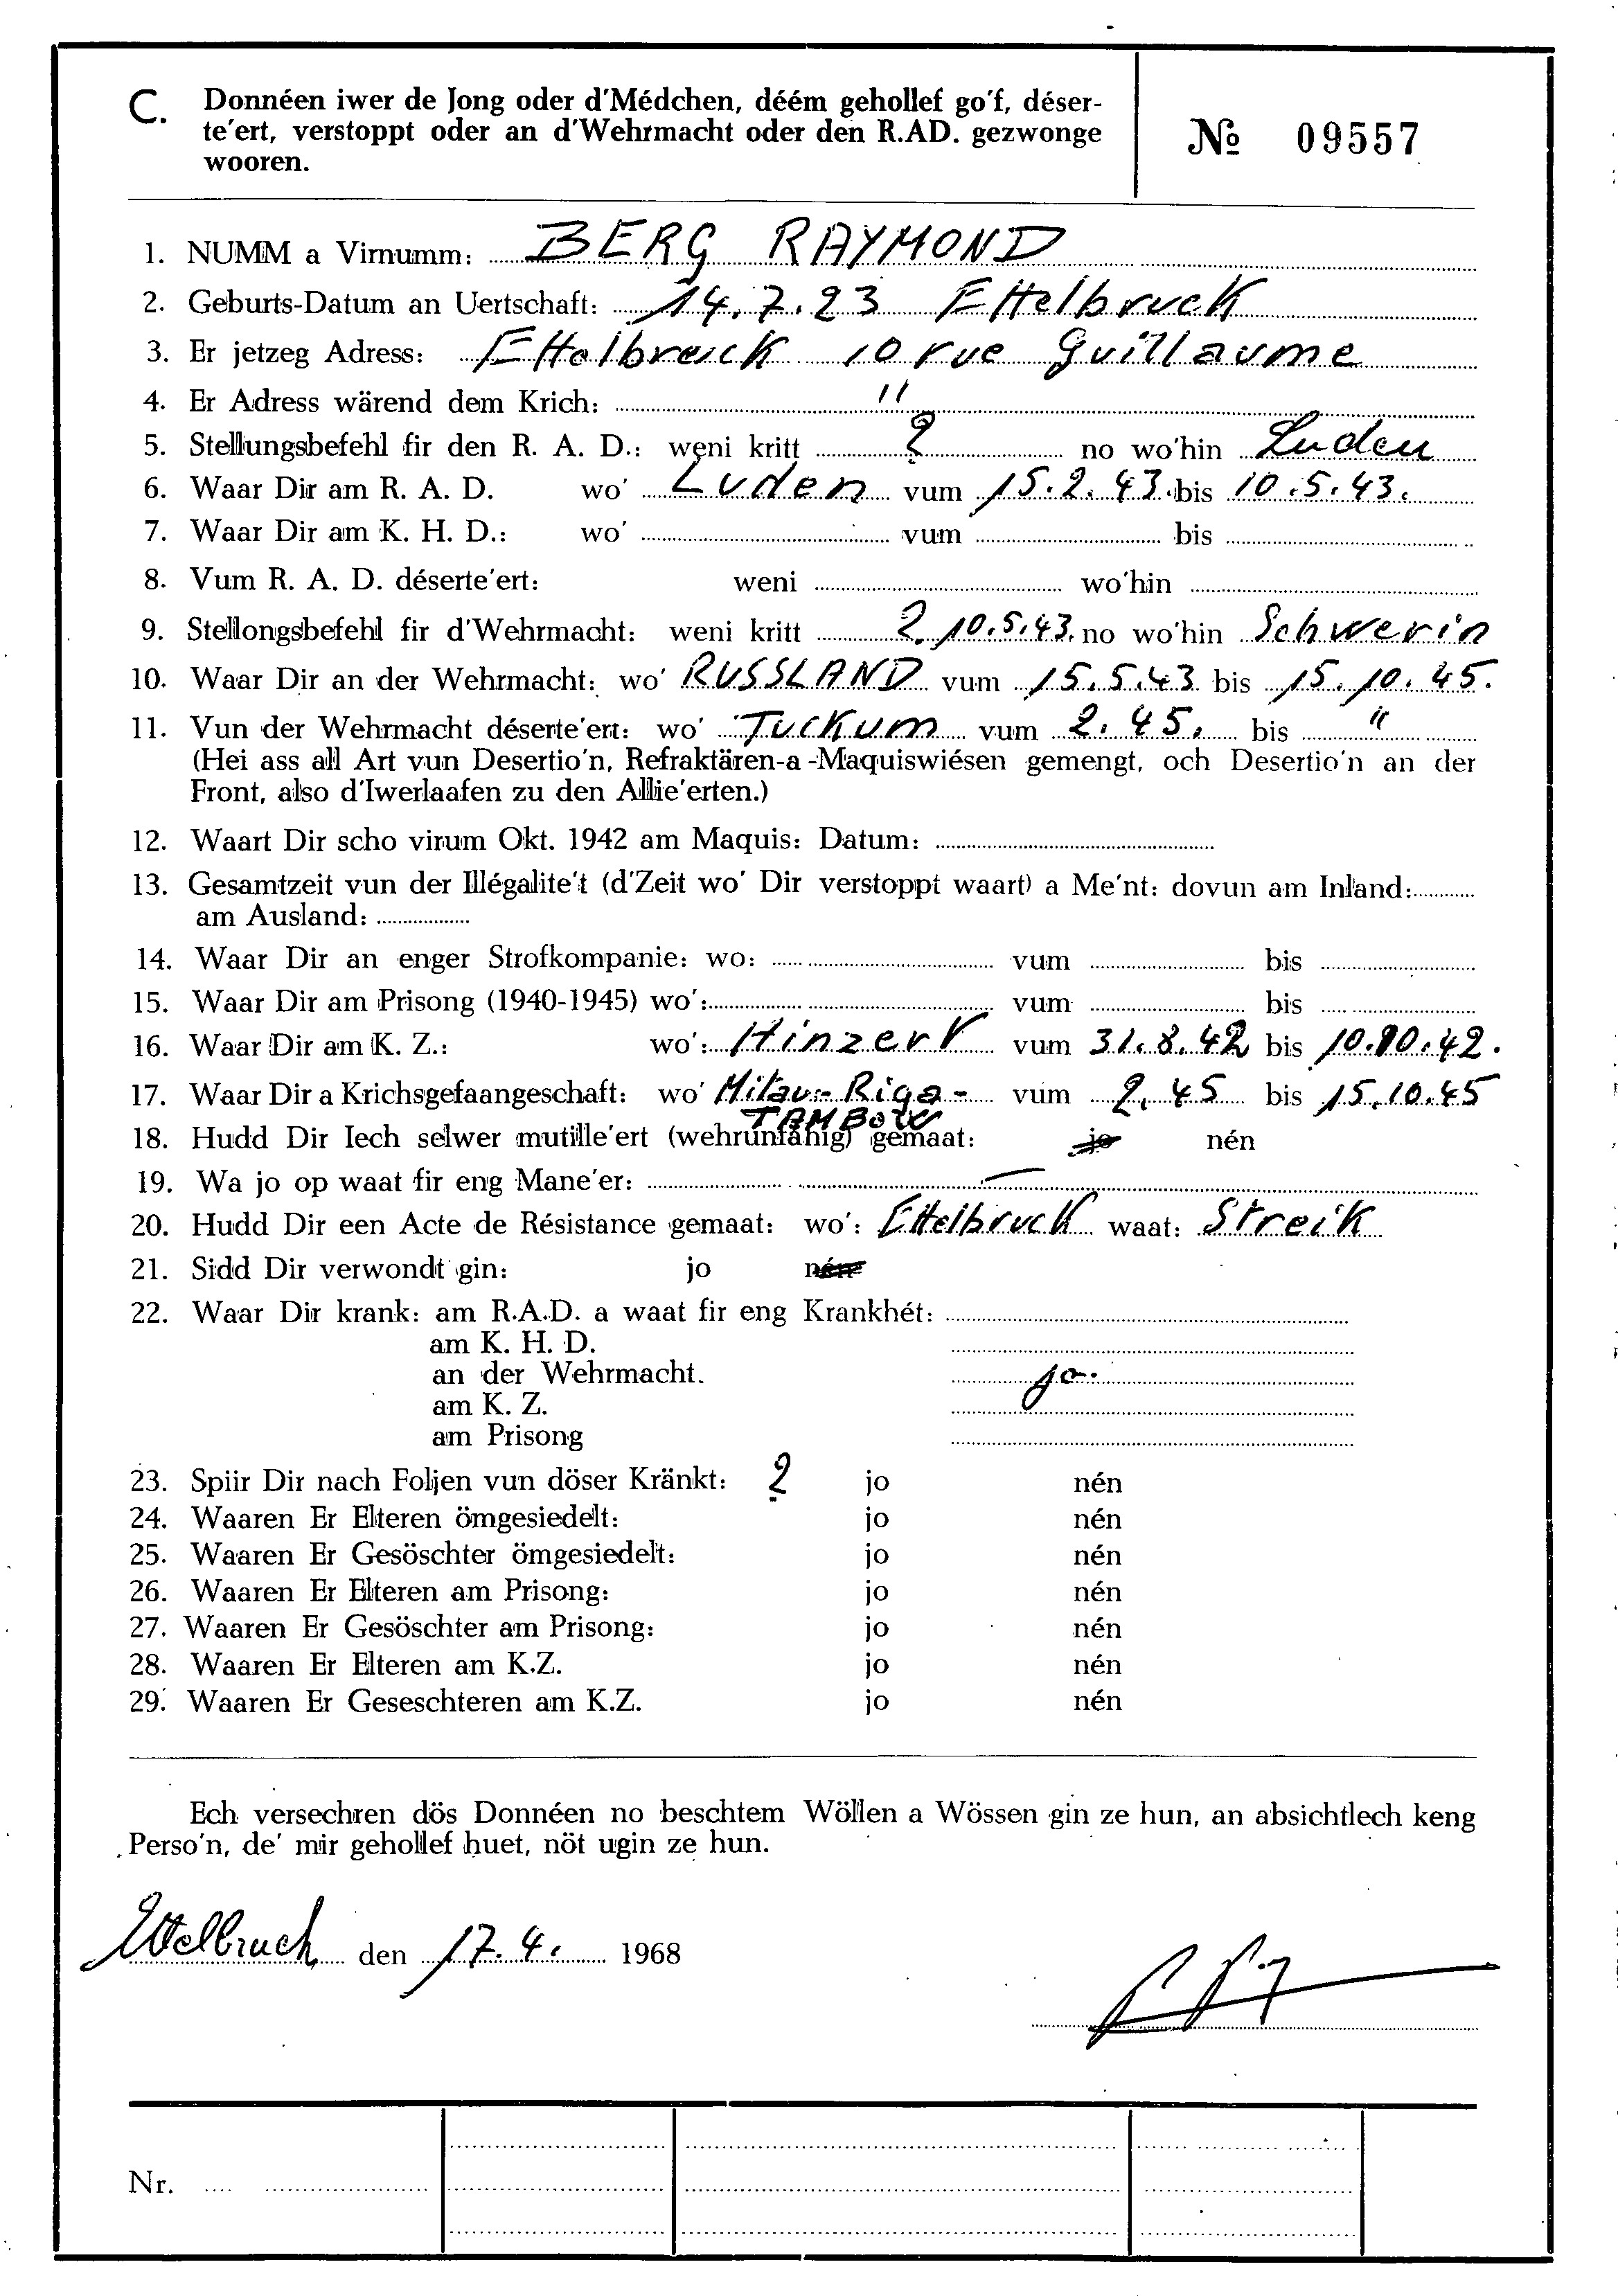 C. Donnéen iwer de Jong oder d'Médchen, déém gehollef go'f, déser-
te'ert, verstoppt oder an d'Wehrmacht oder den R.AD. gezwonge
wooren.
№ 09557
1. NUMM a Virnumm: BERG RAYMOND
2. Geburts-Datum an Uertschaft: 14.7.23 Ettelbruck
3. Er jetzeg Adress: Ettelbruck 10 rue Guillaume
4. Er Adress wärend dem Krich: "
5. Stellungsbefehl fir den R. A. D.: weni kritt ? no wo'hin Luden
6. Waar Dir am R. A. D. wo' Luden vum 15.2.43. bis 10.5.43.
7. Waar Dir am K. H. D.: wo' vum bis
8. Vum R. A. D. déserte'ert: weni wo'hin
9. Stellongsbefehl fir d'Wehrmacht: weni kritt ?. 10.5.43. no wo'hin Schwerin
10. Waar Dir an der Wehrmacht: wo' RUSSLAND vum 15.5.43 bis 15.10.45.
11. Vun der Wehrmacht déserte'ert: wo' Tuckum vum 2.45. bis "
(Hei ass all Art vun Desertio'n, Refraktären-a-Maquiswiésen gemengt, och Desertio'n an der
Front, also d'Iwerlaafen zu den Allie'erten.)
12. Waart Dir scho virum Okt. 1942 am Maquis: Datum:
13. Gesamtzeit vun der Illégalite't (d'Zeit wo' Dir verstoppt waart) a Me'nt: dovun am Inland:
am Ausland:
14. Waar Dir an enger Strofkompanie: wo: vum bis
15. Waar Dir am Prisong (1940-1945) wo': vum bis
16. Waar Dir am K. Z.: wo': Hinzert vum 31.8.42 bis 10.10.42.
17. Waar Dir a Krichsgefaangeschaft: wo' Mitau-Riga- vum 2.45 bis 15.10.45
TAMBOW
18. Hudd Dir Iech selwer mutille'ert (wehrunfähig) gemaat: jo nén
19. Wa jo op waat fir eng Mane'er: —
20. Hudd Dir een Acte de Résistance gemaat: wo': Ettelbruck waat: Streik
21. Sidd Dir verwondt gin: jo nén
22. Waar Dir krank: am R.A.D. a waat fir eng Krankhét:
am K. H. D.
an der Wehrmacht. jo.
am K. Z.
am Prisong
23. Spiir Dir nach Foljen vun döser Kränkt: ? jo nén
24. Waaren Er Elteren ömgesiedelt: jo nén
25. Waaren Er Gesöschter ömgesiedelt: jo nén
26. Waaren Er Elteren am Prisong: jo nén
27. Waaren Er Gesöschter am Prisong: jo nén
28. Waaren Er Elteren am K.Z. jo nén
29. Waaren Er Geseschteren am K.Z. jo nén
Ech versechren dös Donnéen no beschtem Wöllen a Wössen gin ze hun, an absichtlech keng
Perso'n, de' mir gehollef huet, nöt ugin ze hun.
Ettelbruck den 17.4. 1968
Nr.